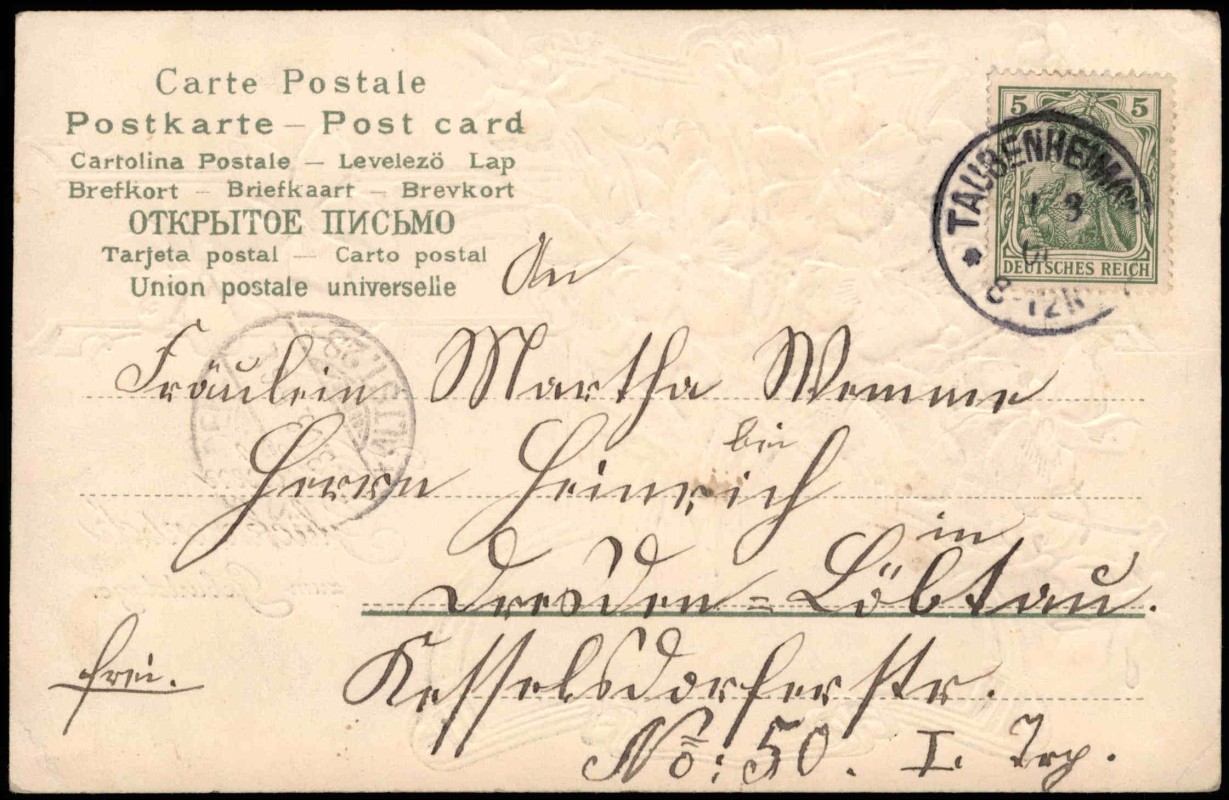 Carte Postale
Postkarte – Post card
Cartolina Postale – Levelezö Lap
Brefkort – Briefkaart – Brevkort
ОТКРЫТОЕ ПИСЬМО
Tarjeta postal — Carto postal
Union postale universelle
5 5
DEUTSCHES REICH
TAUBENHEIM
8-12N
An
Fräulein Martha Wemme
bei
Herrn Heinrich
in
Dresden=Löbtau.
frei.
Kesselsdorferstr.
No: 50. I. Trp.